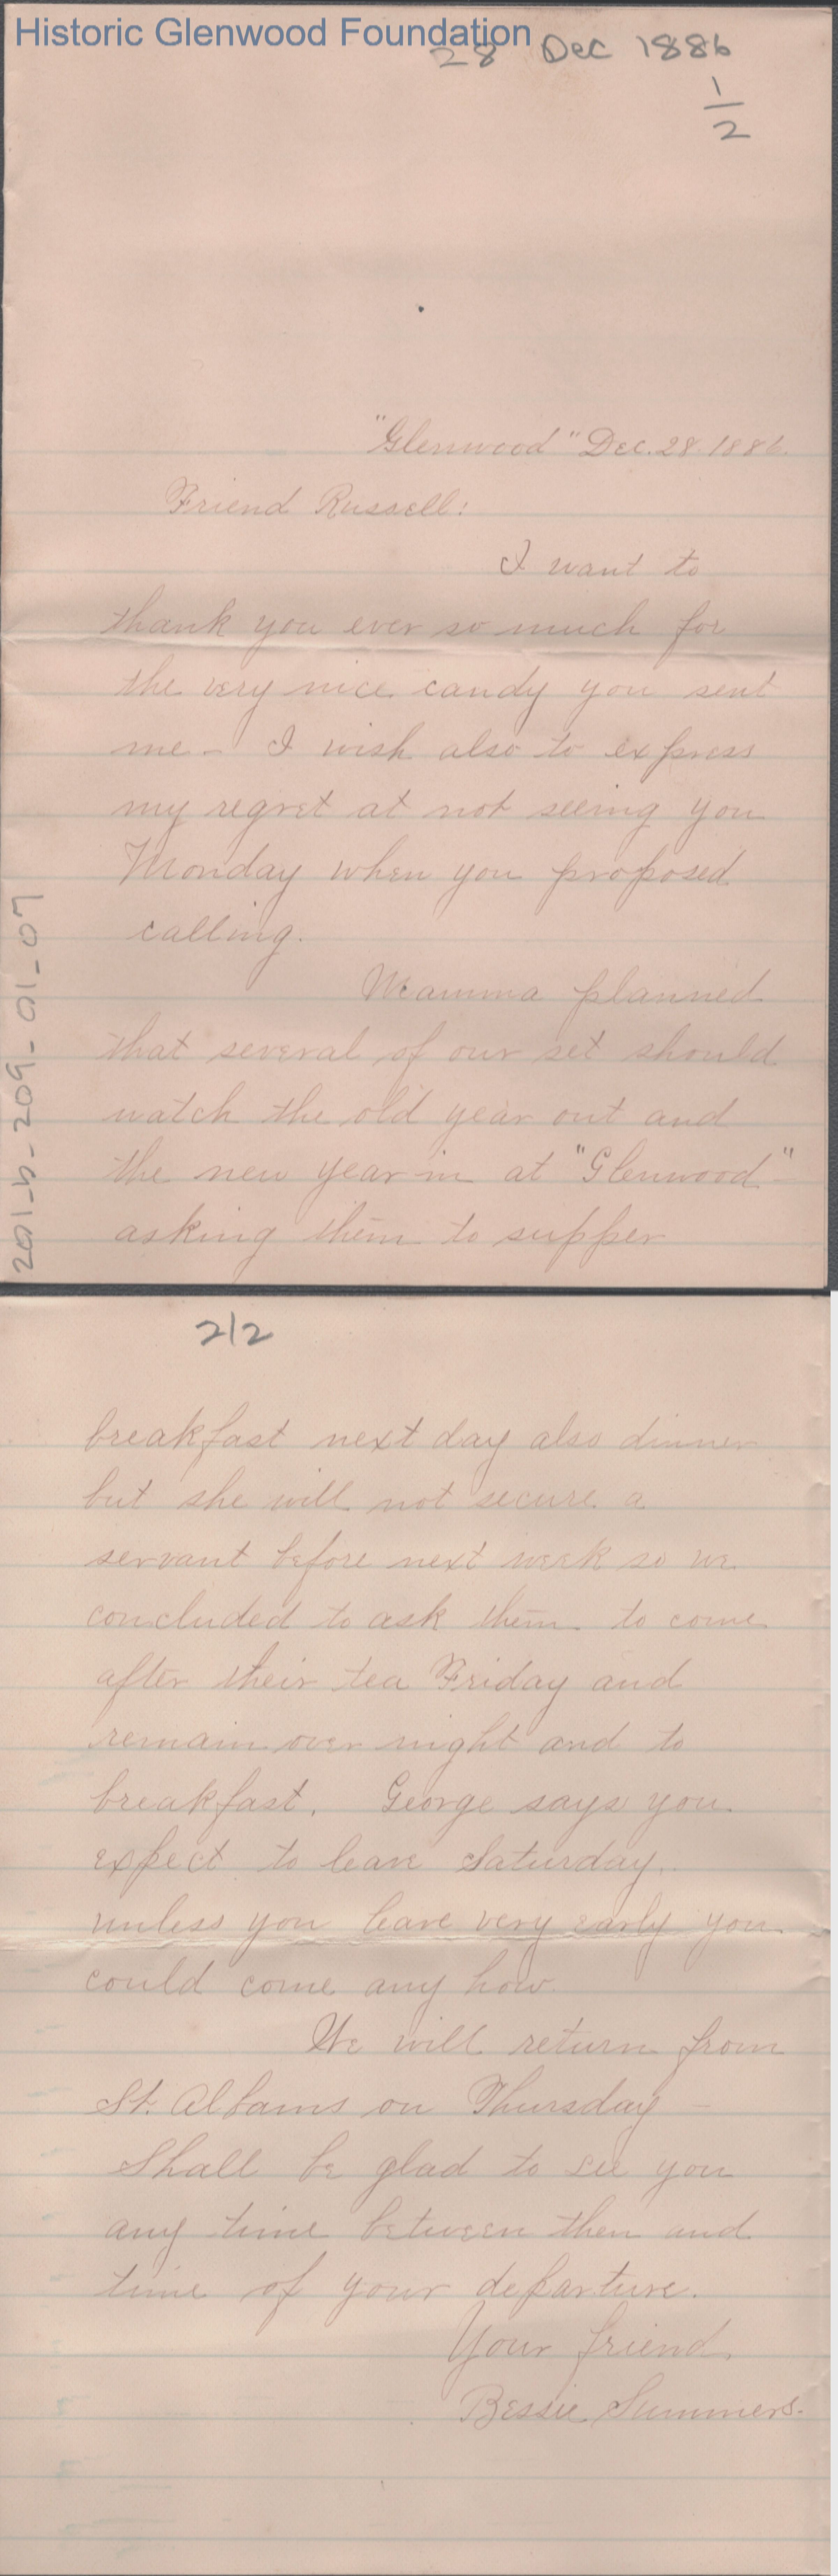 Historic Glenwood Foundation
28 Dec 1886
1/2
"Glenwood" Dec. 28. 1886.
Friend Russell:
I want to
thank you ever so much for
the very nice candy you sent
me - I wish also to express
my regret at not seeing you
Monday when you proposed
calling.
Mamma planned
that several of our set should
watch the old year out and
the new year in at "Glenwood" -
asking them to supper
201-b-209-01-07
2/2
breakfast next day also dinner
but she will not secure a
servant before next week so we
concluded to ask them to come
after their tea Friday and
remain over night and to
breakfast. George says you
expect to leave Saturday.
unless you leave very early you
could come any how.
We will return from
St. Albans on Thursday -
Shall be glad to see you
any time between then and
time of your departure.
Your friend,
Bessie Summers.